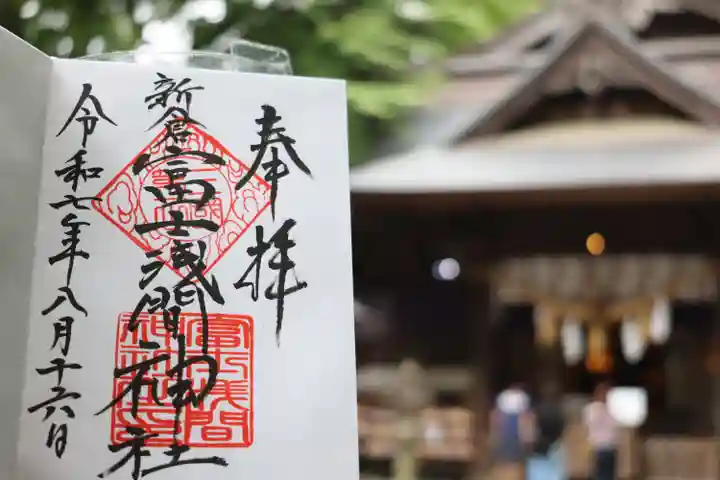 奉拝
新倉富士浅間神社
令和七年八月十六日